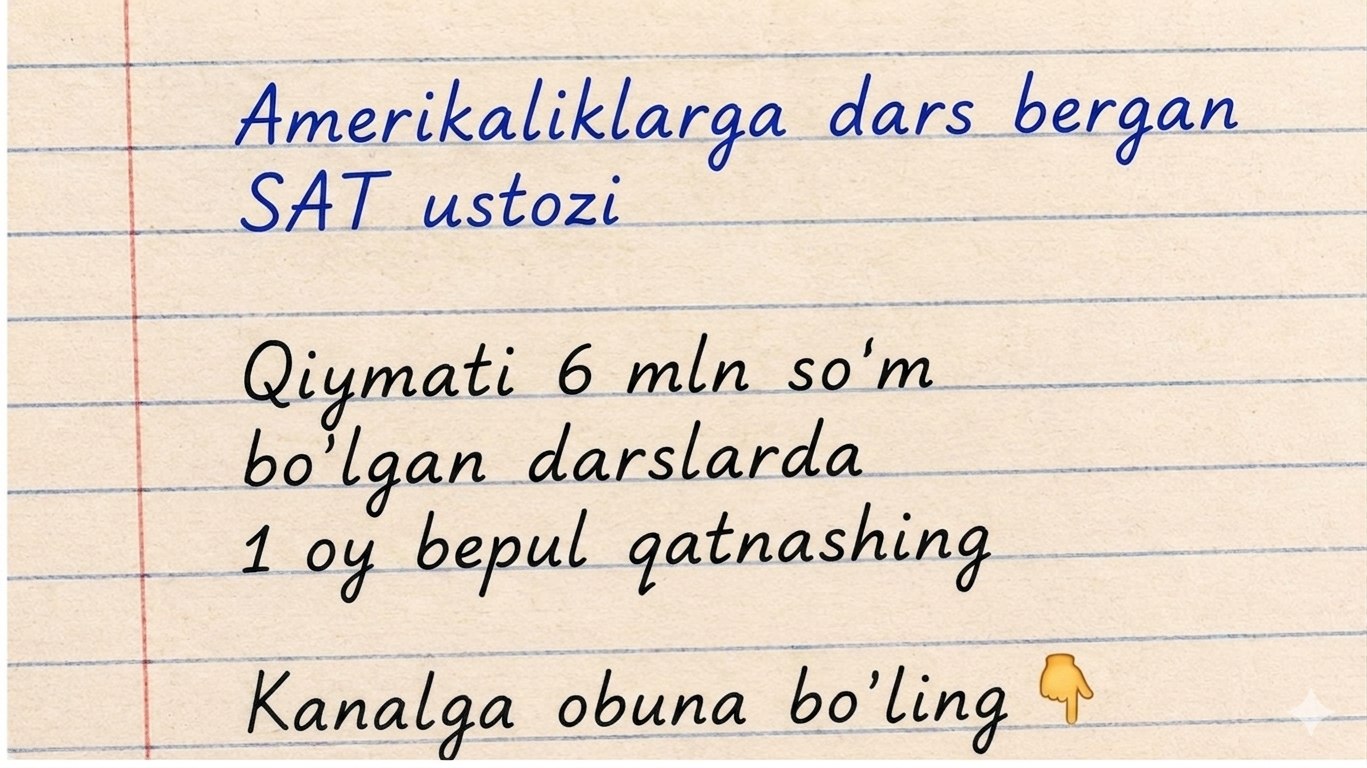 Amerikaliklarga dars bergan
SAT ustozi
Qiymati 6 mln so‘m
bo’lgan darslarda
1 oy bepul qatnashing
Kanalga obuna bo’ling 👇